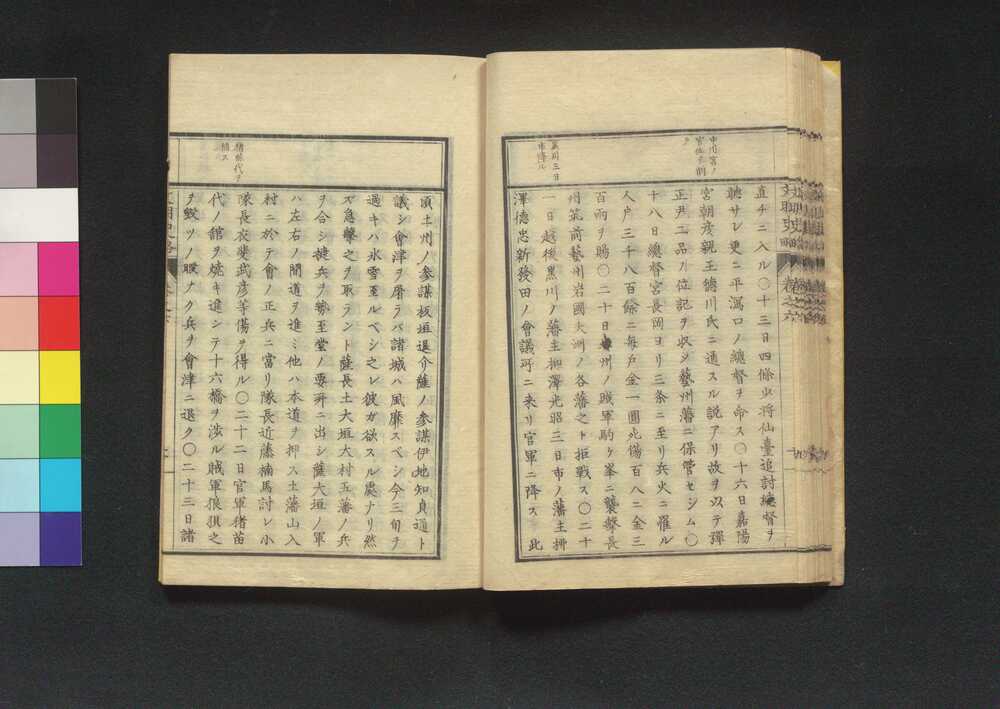 直チニ入ル〇十三日四條少将仙臺追討總督ヲ
聽サレ更ニ平潟口ノ總督ヲ命ス〇十六日嘉陽
宮朝彦親王徳川氏ニ通スル説アリ故ヲ以テ彈
正尹二品ノ位記ヲ収シ藝州藩ニ保管セシム〇
十八日總督宮長岡ヨリ三条ニ至リ兵火ニ罹ル
人戸三千八百餘ニ毎戸金一圓死傷百八ニ金三
百兩ヲ賜〇二十日州ノ賊軍駒ケ峯ニ襲撃長
州筑前藝州岩國大洲ノ各藩之ト拒戦ス〇二十
一日越後黒川ノ藩主柳澤光昭三日市ノ藩主柳
澤徳忠新發田ノ會議所ニ来リ官軍ニ降ス此
頃土州ノ参謀板垣退介薩ノ参謀伊地知貞通ト
議シ會津ヲ屠ラバ諸城ハ風靡スベシ今三旬ヲ
過キハ氷雪至ルベシ之レ彼ガ欲スル處ナリ然
ズ急撃之ヲ取ラント薩長土大垣大村五藩ノ兵
ヲ合シ捷兵ヲ勢至堂ノ要所ニ出シ薩大垣ノ軍
ハ左右ノ間道ヲ進ミ他ハ本道ヲ押ス土藩山入
村ニ於テ會ノ正兵ニ當リ隊長近藤楠馬討レ小
隊長衣斐武彦等傷ヲ得ル〇二十二日官軍猪苗
代ノ舘ヲ焼キ進シテ十六橋ヲ渉ル賊軍狼狽之
ヲ毀ツノ暇ナク兵ヲ會津ニ退ク〇二十三日諸